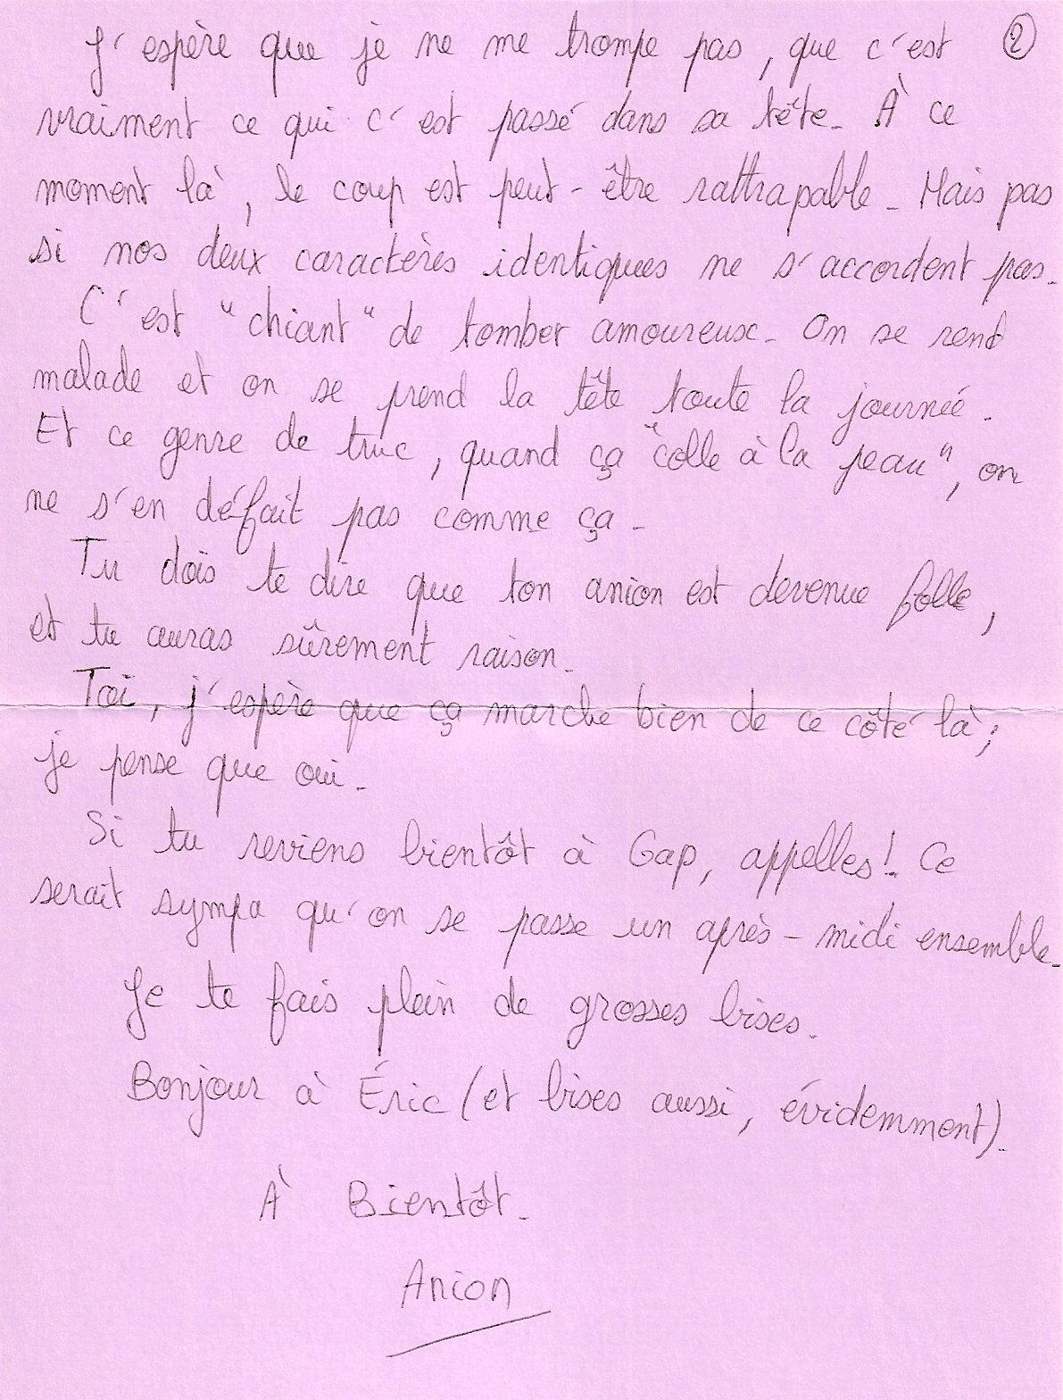 J'espère que je ne me trompe pas, que c'est ②
vraiment ce qui c'est passé dans sa tête. À ce
moment là, le coup est peut-être rattrapable. Mais pas
si nos deux caractères identiques ne s'accordent pas.
C'est "chiant" de tomber amoureux. On se rend
malade et on se prend la tête toute la journée.
Et ce genre de truc, quand ça "colle à la peau", on
ne s'en défait pas comme ça.
Tu dois te dire que ton anion est devenue folle,
et tu auras sûrement raison.
Toi, j'espère que ça marche bien de ce côté là ;
je pense que oui.
Si tu reviens bientôt à Gap, appelles! Ce
serait sympa qu'on se passe un après-midi ensemble.
Je te fais plein de grosses bises.
Bonjour à Éric (et bises aussi, évidemment).
À Bientôt.
Anion